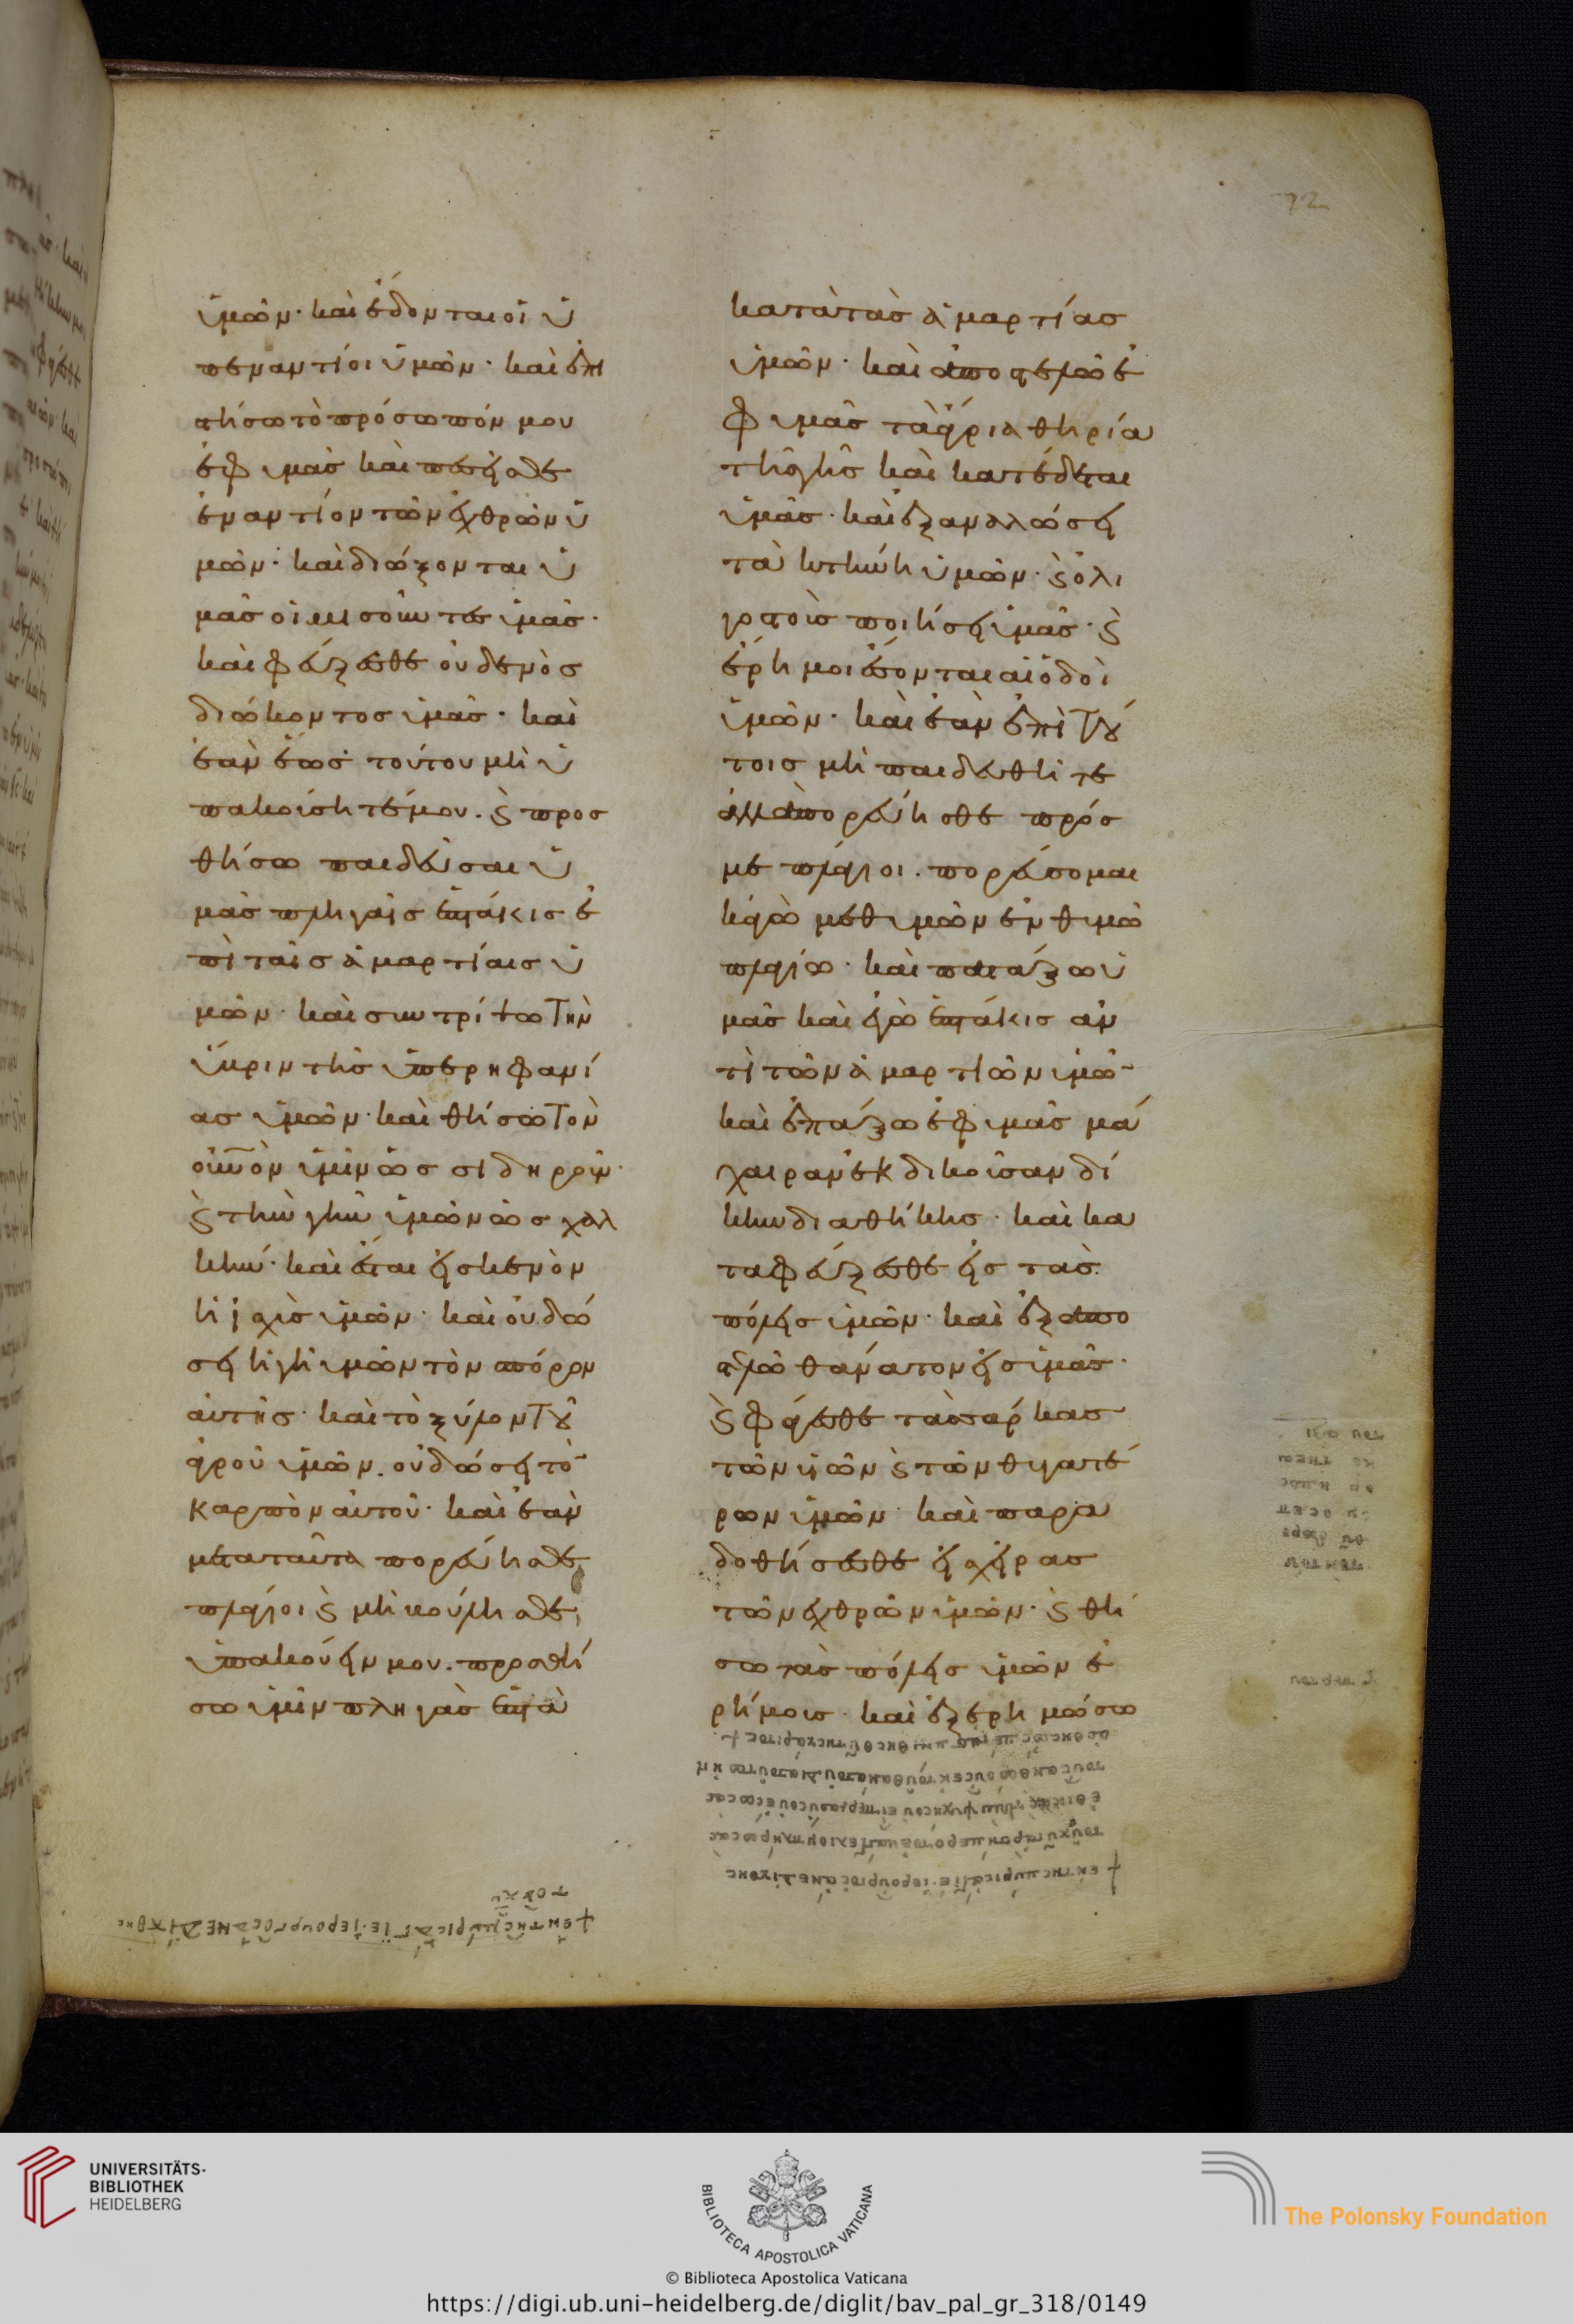 72
ὑμῶν· καὶ ἔδονται οἱ ὑ
πεναντίοι ὑμῶν· καὶ ἐπι
στήσω τὸ πρόσωπόν μου
ἐφ ὑμᾶς καὶ πεσεῖσθε
ἐναντίον τῶν ἐχθρῶν ὑ
μῶν· καὶ διώξονται ὑ
μᾶς οἱ μισοῦντες ὑμᾶς·
καὶ φεύξεσθε οὐδενὸς
διώκοντος ὑμᾶς· καὶ
ἐὰν ἕως τούτου μὴ ὑ
πακούσητέ μου. ϗ προσ
θήσω παιδεῦσαι ὑ
μᾶς πληγαῖς ἑπτάκις ἐ
πὶ ταῖς ἁμαρτίαις ὑ
μῶν· καὶ συντρίψω τὴν
ὕβριν τῆς ὑπερηφανί
ας ὑμῶν· καὶ θήσω τὸν
οὐνὸν ὑμῖν ὡς σιδηροῦν·
ϗ τὴν γῆν ὑμῶν ὡς χαλ
κῆν· καὶ ἔσται εἰς κενὸν
ἡ ἰσχὺς ὑμῶν· καὶ οὐ δώ
σει ἡ γῆ ὑμῶν τὸν σπόρον
αὐτῆς· καὶ τὸ ξύλον τοῦ
ἀγροῦ ὑμῶν. οὐ δώσει τὸ
καρπὸν αὐτοῦ· καὶ ἐὰν
μετὰ ταῦτα πορεύησθε
πλάγιοι ϗ μὴ βούλησθε
ὑπακούειν μου. προσθή
σω ὑμῖν πληγὰς ἑπτὰ
κατὰ τὰς ἁμαρτίας
ὑμῶν· καὶ ἀποστελῶ ἐ
φ ὑμᾶς τὰ ἄγρια θηρία
τῆς γῆς καὶ κατέδεται
ὑμᾶς· καὶ ἐξαναλώσει
τὰ κτήνη ὑμῶν· ϗ ὀλι
γοστοὺς ποιήσει ὑμᾶς· ϗ
ἔρημοι ἔσονται αἱ ὁδοὶ
ὑμῶν· καὶ ἐὰν ἐπὶ τού
τοις μὴ παιδευθῆτε
ἀλλὰ πορεύησθε πρός
με πλάγιοι. πορεύσομαι
κἀγὼ μεθ ὑμῶν ἐν θυμῷ
πλαγίῳ· καὶ πατάξω ὑ
μᾶς καὶ ἐγὼ ἑπτάκις ἀν
τὶ τῶν ἁμαρτιῶν ὑμῶ
καὶ ἐπάξω ἐφ ὑμᾶς μά
χαιραν ἐκδικοῦσαν δί
κην διαθήκης· καὶ κα
ταφεύξεσθε εἰς τὰς
πόλεις ὑμῶν· καὶ ἐξαπο
στελῶ θάνατον εἰς ὑμᾶς·
ϗ φάγεσθε τὰς σάρκας
τῶν υἱῶν ϗ τῶν θυγατέ
ρων ὑμῶν· καὶ παρα
δοθήσεσθε εἰς χεῖρας
τῶν ἐχθρῶν ὑμῶν· ϗ θή
σω τὰς πόλεις ὑμῶν ἐ
ρήμους· καὶ ἐξερημώσω
UNIVERSITÄTS-
BIBLIOTHEK
HEIDELBERG
BIBLIOTECA APOSTOLICA VATICANA
© Biblioteca Apostolica Vaticana
The Polonsky Foundation
https://digi.ub.uni-heidelberg.de/diglit/bav_pal_gr_318/0149